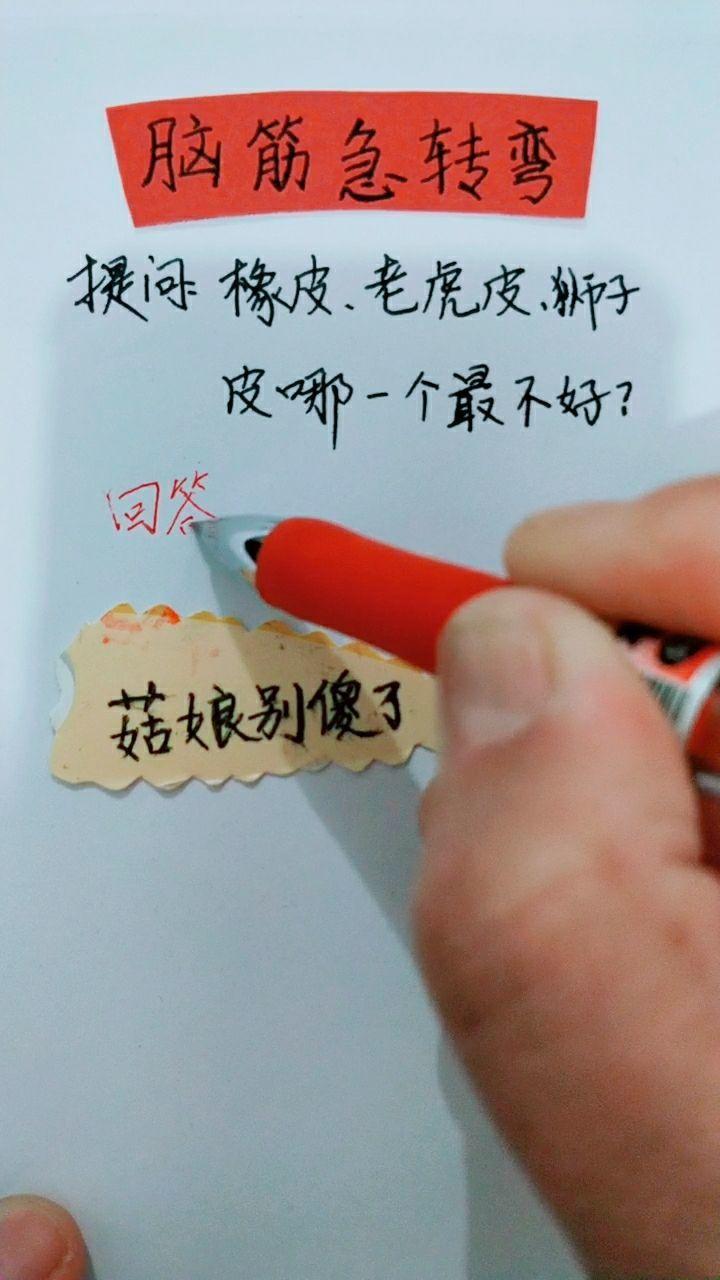 脑筋急转弯
提问: 橡皮、老虎皮、狮子
皮哪一个最不好?
回答
菇娘别傻了